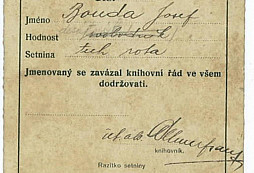 Jméno Bouda Josef
Hodnost
Setnina tech rota
Jmenovaný se zavázal knihovní řád ve všem
dodržovati.
knihovník.
Razítko setniny